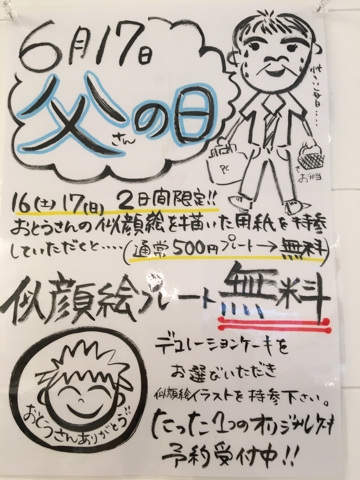 6月17日
父さんの日
忙しい毎日・・・・
PC
お弁当
16(土)17(日) 2日間限定!!
おとうさんの似顔絵を描いた用紙を持参
していただくと・・・・(通常500円プレート→無料)
似顔絵プレート無料
デコレーションケーキを
お選びいただき
似顔絵イラストを持参下さい。
たった1つのオリジナルケーキ
予約受付中!!
おとうさんありがとう!!